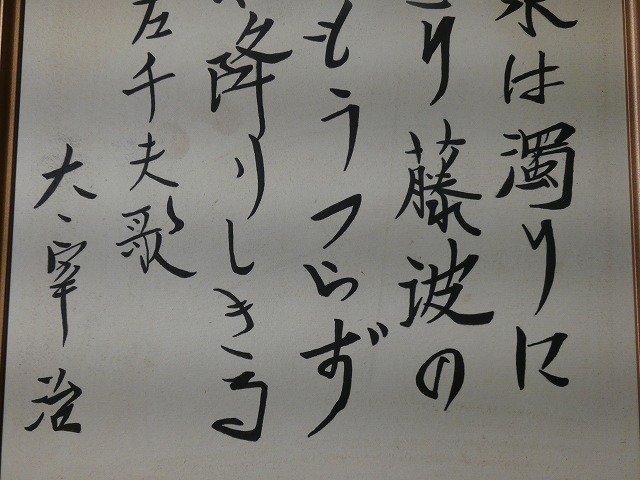 水は濁りに
り藤波の
もうつらず
降りしきる
左千夫歌
太宰治